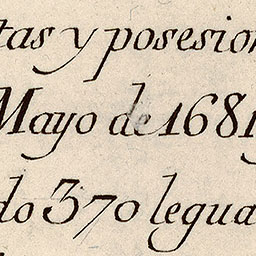 tas y posesion
Mayo de 1681
do 370 legua